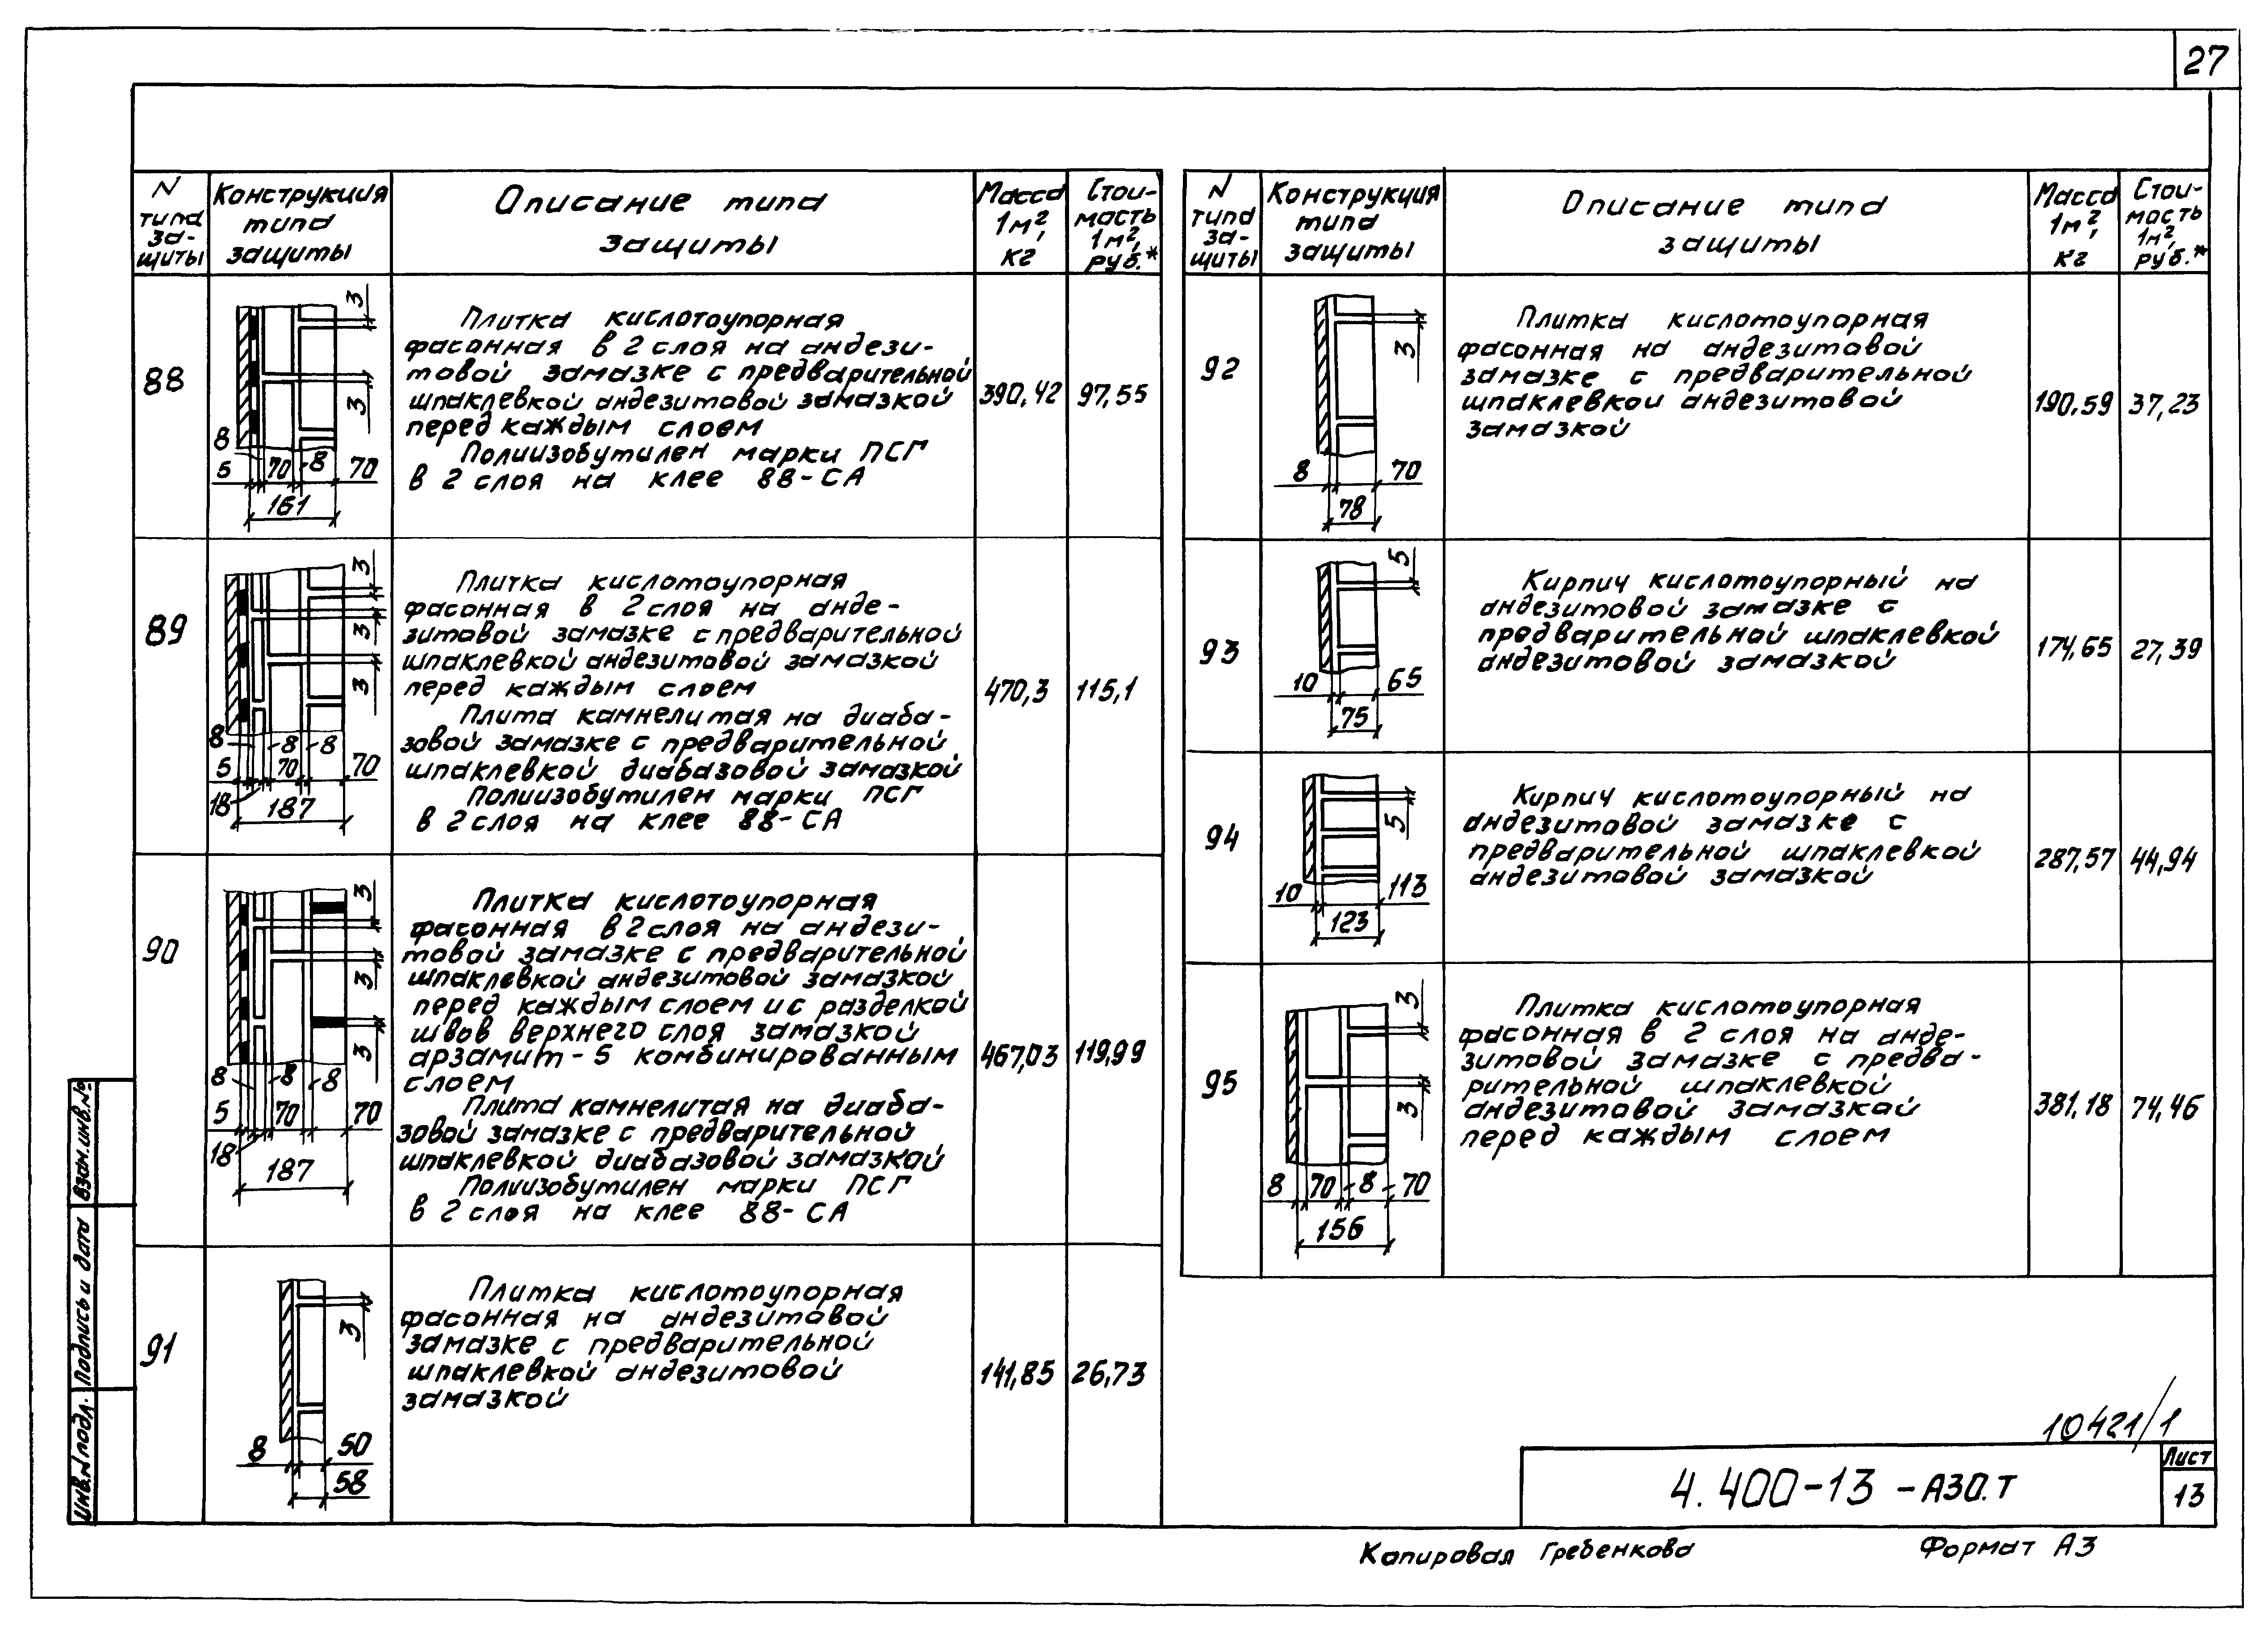 27
N
типа
за-
щиты
Конструкция
типа
защиты
Описание типа
защиты
Масса
1м²,
кг
Стои-
мость
1м²,
руб.*
88
3
3
8
5 70 8 70
161
Плитка кислотоупорная
фасонная в 2 слоя на андези-
товой замазке с предварительной
шпаклевкой андезитовой замазкой
перед каждым слоем
Полиизобутилен марки ПСГ
в 2 слоя на клее 88-СА
390,42
97,55
89
3
3
3
8 8 8
5 70 70
18 187
Плитка кислотоупорная
фасонная в 2 слоя на анде-
зитовой замазке с предварительной
шпаклевкой андезитовой замазкой
перед каждым слоем
Плита камнелитая на диаба-
зовой замазке с предварительной
шпаклевкой диабазовой замазкой
Полиизобутилен марки ПСГ
в 2 слоя на клее 88-СА
470,3
115,1
90
3
3
3
8 8 8
5 70 70
18
187
Плитка кислотоупорная
фасонная в 2 слоя на андези-
товой замазке с предварительной
шпаклевкой андезитовой замазкой
перед каждым слоем и с разделкой
швов верхнего слоя замазкой
арзамит-5 комбинированным
слоем
Плита камнелитая на диаба-
зовой замазке с предварительной
шпаклевкой диабазовой замазкой
Полиизобутилен марки ПСГ
в 2 слоя на клее 88-СА
467,03
119,99
91
3
8 50
58
Плитка кислотоупорная
фасонная на андезитовой
замазке с предварительной
шпаклевкой андезитовой
замазкой
141,85
26,73
N
типа
за-
щиты
Конструкция
типа
защиты
Описание типа
защиты
Масса
1м²,
кг
Стои-
мость
1м²,
руб.*
92
3
8 70
78
Плитка кислотоупорная
фасонная на андезитовой
замазке с предварительной
шпаклевкои андезитовой
замазкой
190,59
37,23
93
5
10 65
75
Кирпич кислотоупорный на
андезитовой замазке с
предварительной шпаклевкой
андезитовой замазкой
174,65
27,39
94
5
10 113
123
Кирпич кислотоупорный на
андезитовой замазке с
предварительной шпаклевкой
андезитовой замазкой
287,57
44,94
95
3
3
8 70 8 70
156
Плитка кислотоупорная
фасонная в 2 слоя на анде-
зитовой замазке с предва-
рительной шпаклевкой
андезитовой замазкой
перед каждым слоем
381,18
74,46
Взам.инв.№
Подпись и дата
Инв.N подл.
10421/1
4.400-13 -АЗО.Т
Лист
13
Копировал Гребенкова
Формат А3